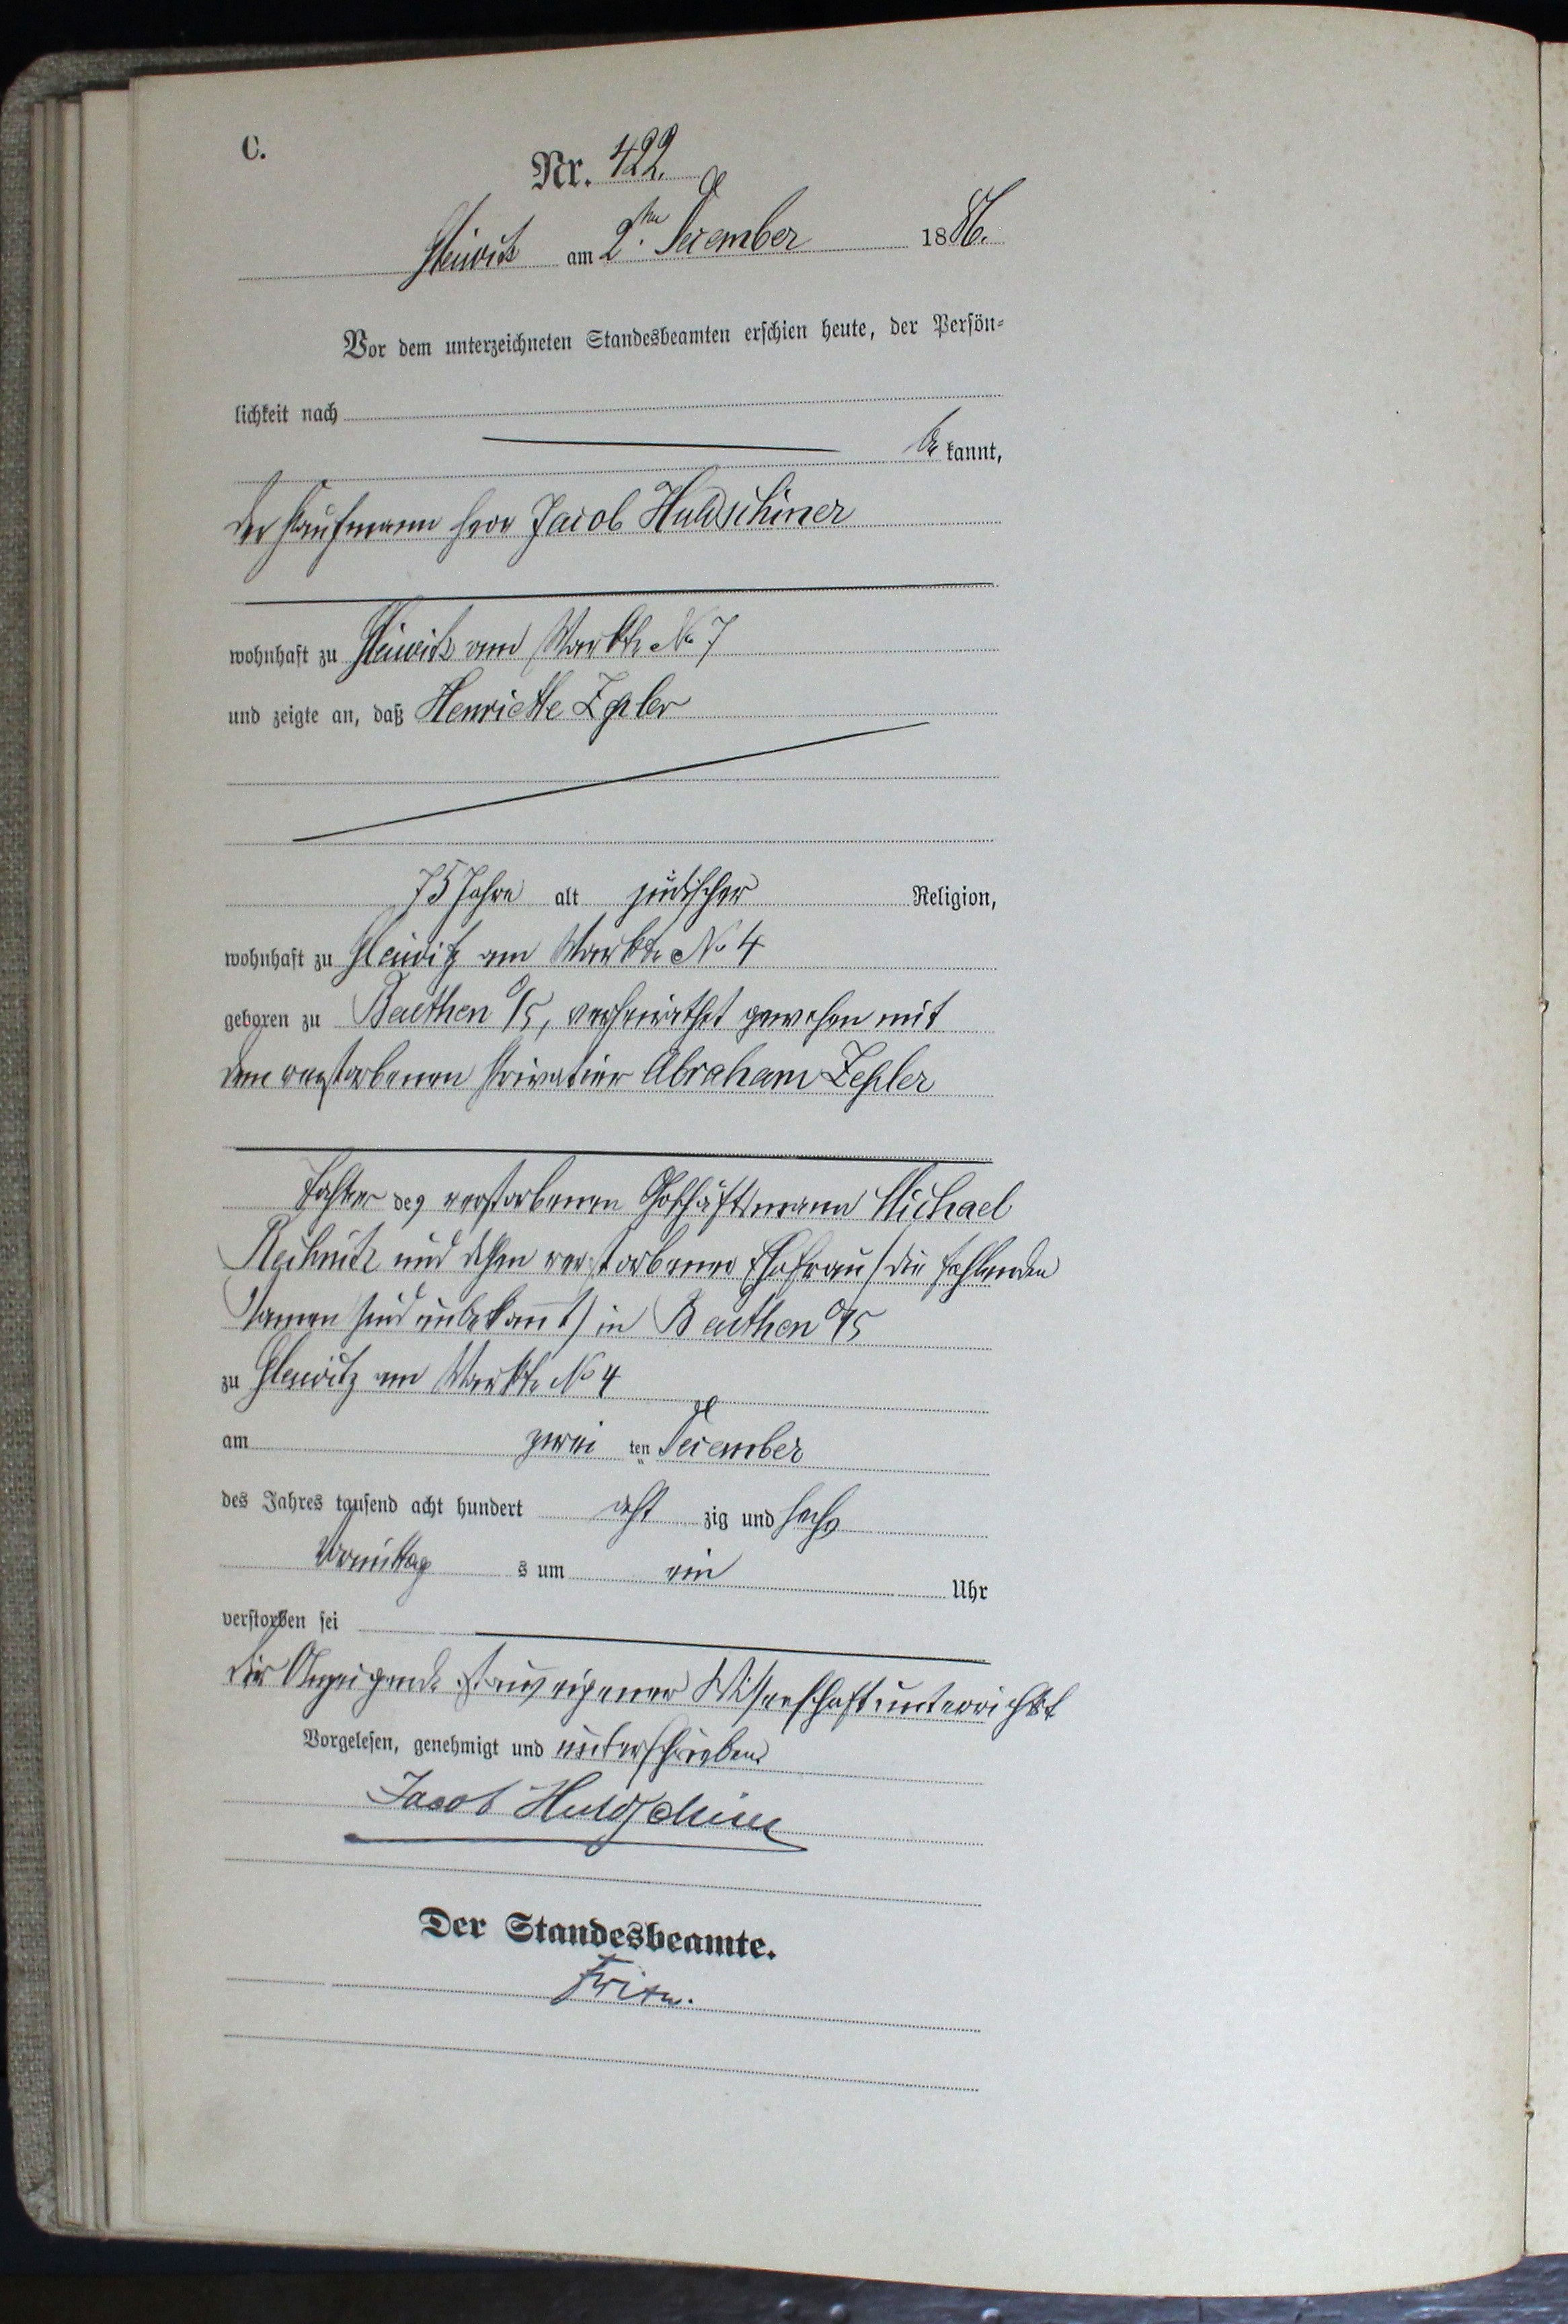 C.
Nr. 422.
Gleiwitz am 2ten December 1886.
Vor dem unterzeichneten Standesbeamten erschien heute, der Persön-
lichkeit nach
be kannt,
der Kaufmann Herr Jacob Huldschiner
wohnhaft zu Gleiwitz am Markte No 7
und zeigte an, daß Henriette Zepler
75 Jahre alt jüdischer Religion,
wohnhaft zu Gleiwitz am Markte No 4
geboren zu Beuthen O/S, verheirathet gewesen mit
dem verstorbenen Privatier Abraham Zepler
Tochter des verstorbenen Geschäftsmann Michael
und dessen verstorbener Ehefrau (die fehlenden
Namen sind unbekannt) in Beuthen O/S
zu Gleiwitz am Markte No 4
am zwei ten December
des Jahres tausend acht hundert acht zig und sechs
Vormittag s um ein Uhr
verstorben sei
der Anzeigende ist aus eigener Wissenschaft unterrichtet
Vorgelesen, genehmigt und unterschrieben
Jacob Huldschiner
Der Standesbeamte.